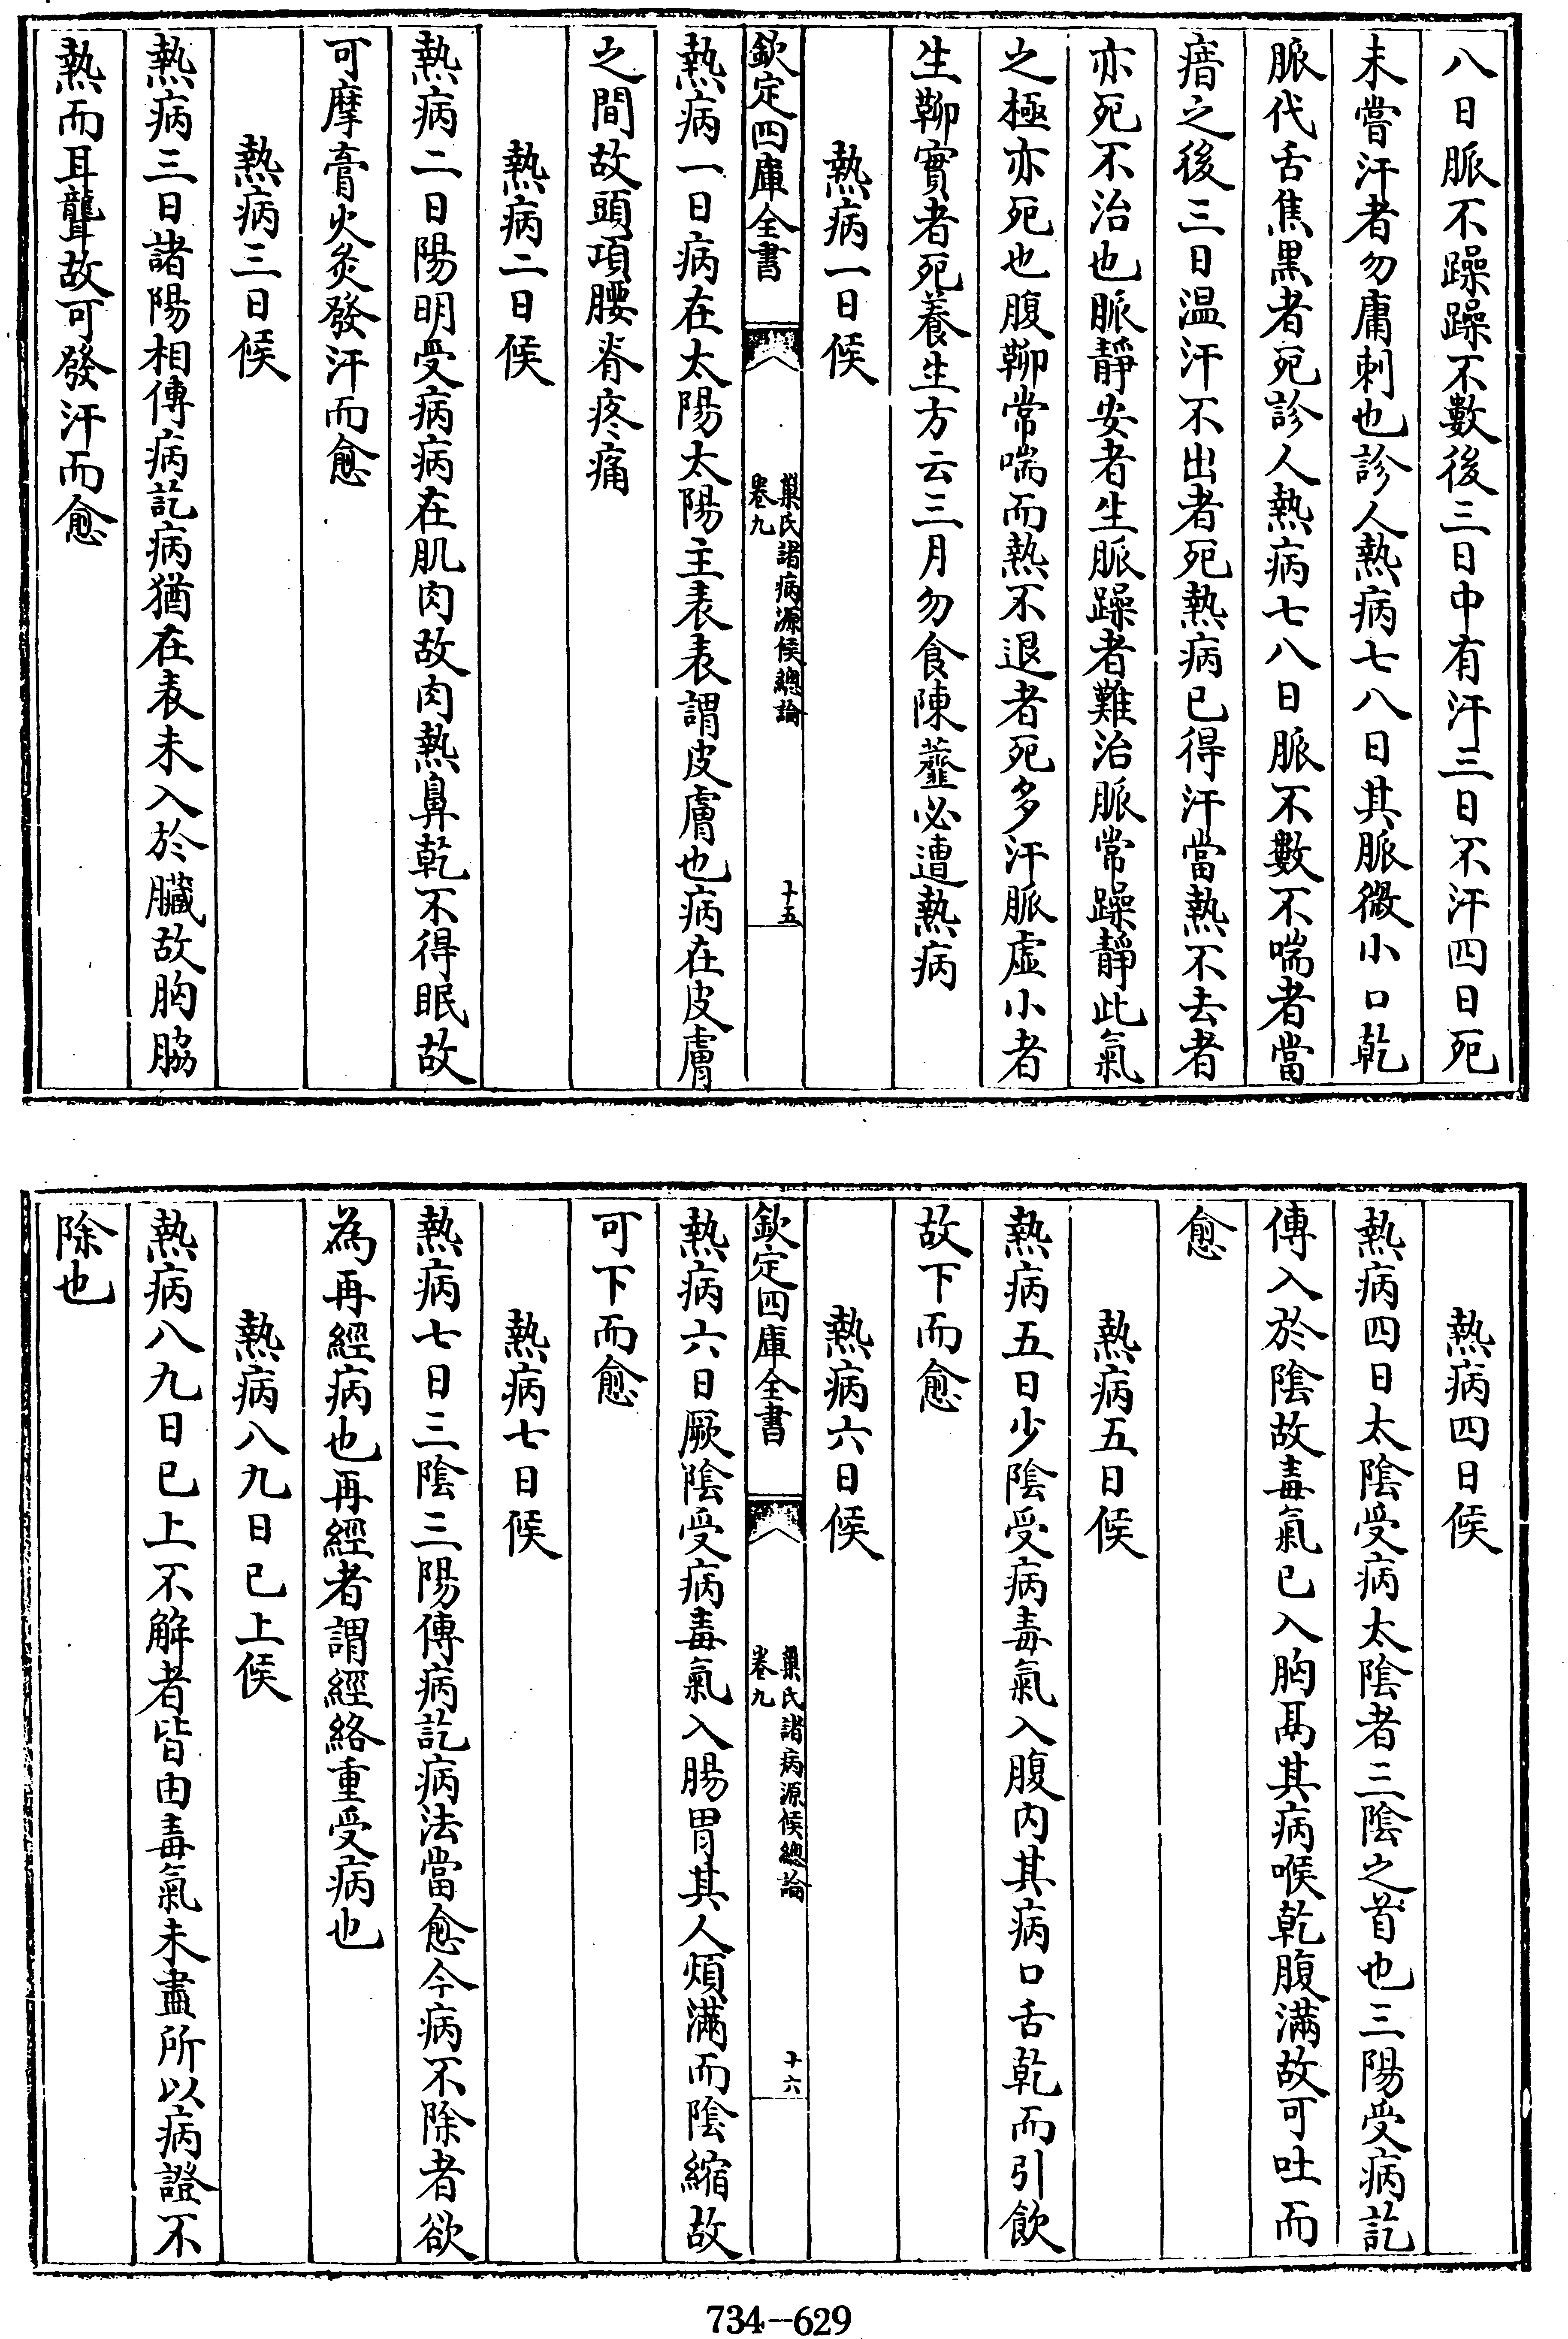 八日脈不躁躁不數後三日中有汗三日不汗四日死
未嘗汗者勿庸刺也診人熱病七八日其脈微小口乾
脈代舌焦黒者死診人熱病七八日脈不數不喘者當
瘖之後三日温汗不出者死熱病已得汗當熱不去者
亦死不治也脈靜安者生脈躁者難治脈常躁靜此氣
之極亦死也腹聊常喘而熱不退者死多汗脈虚小者
生聊實者死養生方云三月勿食陳虀必遭熱病
熱病一日候
欽定四庫全書
巢氏諸病源候總論
卷九
十五
熱病一日病在太陽太陽主表表謂皮膚也病在皮膚
之間故頭項腰脊疼痛
熱病二日候
熱病二日陽明受病病在肌肉故肉熱鼻乾不得眠故
可摩膏火灸發汗而愈
熱病三日候
熱病三日諸陽相傳病訖病猶在表未入於臟故胸脇
熱而耳聾故可發汗而愈
熱病四日候
熱病四日太陰受病太陰者三陰之首也三陽受病訖
傳入於陰故毒氣已入胸鬲其病喉乾腹滿故可吐而
愈
熱病五日候
熱病五日少陰受病毒氣入腹内其病口舌乾而引飲
故下而愈
熱病六日候
欽定四庫全書
巢氏諸病源候總論
卷九
十六
熱病六日厥陰受病毒氣入腸胃其人煩滿而陰縮故
可下而愈
熱病七日候
熱病七日三陰三陽傳病訖病法當愈今病不除者欲
為再經病也再經者謂經絡重受病也
熱病八九日已上候
熱病八九日已上不解者皆由毒氣未盡所以病證不
除也
734-629